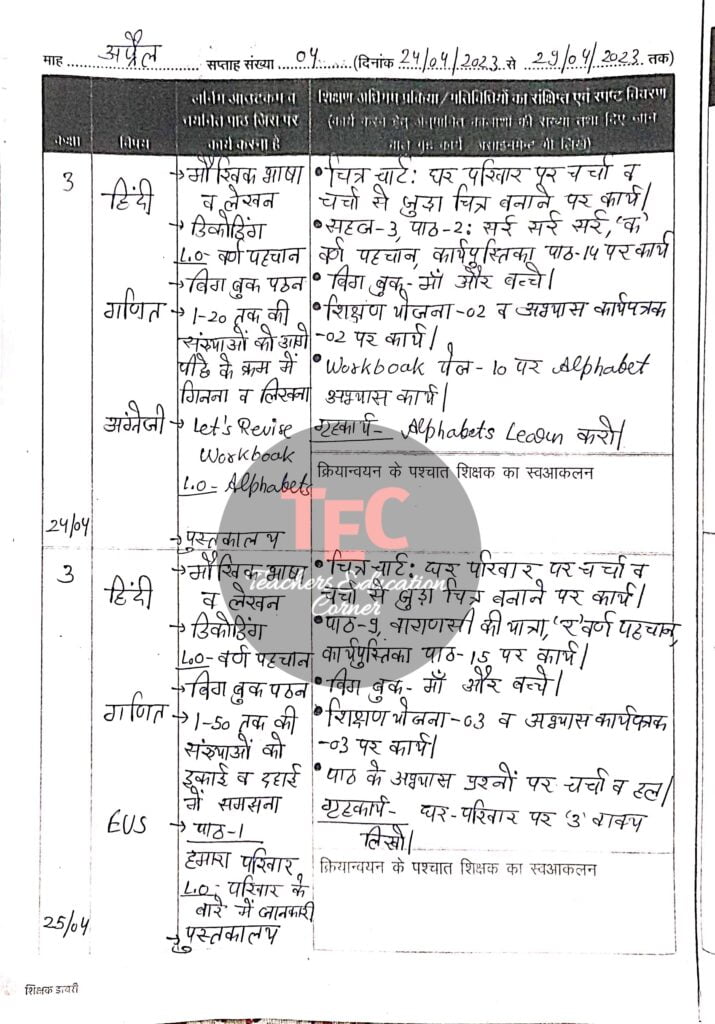 माह अप्रैल सप्ताह संख्या 04 (दिनांक 24/04/2023 से 29/04/2023 तक)
कक्षा
विषय
लर्निंग आउटकम व
चयनित पाठ जिस पर
कार्य करना है
शिक्षण अधिगम प्रक्रिया / गतिविधियों का संक्षिप्त एवं स्पष्ट विवरण
(कार्य करने हेतु अनुमानित कालांशों की संख्या तथा दिए जाने
वाले गृह कार्य असाइनमेन्ट भी लिखें)
3
हिंदी
→ मौखिक भाषा
व लेखन
→ डिकोडिंग
L.O- वर्ण पहचान
→ बिग बुक पठन
• चित्र चार्ट: घर परिवार पर चर्चा व
चर्चा से जुड़ा चित्र बनाने पर कार्य।
• सहज-3, पाठ-2: सर्र सर्र सर्र, 'क'
वर्ण पहचान, कार्यपुस्तिका पाठ-14 पर कार्य
• बिग बुक- माँ और बच्चे।
गणित
→ 1-20 तक की
संख्याओं को आगे
पीछे के क्रम में
गिनना व लिखना
• शिक्षण योजना-02 व अभ्यास कार्यपत्रक
-02 पर कार्य।
अंग्रेजी
→ Let's Revise
Workbook
L.O- Alphabets
• Workbook पेज-10 पर Alphabet
अभ्यास कार्य।
गृहकार्य- Alphabets Learn करो।
क्रियान्वयन के पश्चात शिक्षक का स्वआकलन
24/04
→ पुस्तकालय
TEC
Teachers Education
Corner
3
हिंदी
→ मौखिक भाषा
व लेखन
→ डिकोडिंग
L.O- वर्ण पहचान
→ बिग बुक पठन
• चित्र चार्ट: घर परिवार पर चर्चा व
चर्चा से जुड़ा चित्र बनाने पर कार्य।
• पाठ-9, वाराणसी की यात्रा, 'र' वर्ण पहचान,
कार्यपुस्तिका पाठ-15 पर कार्य।
• बिग बुक- माँ और बच्चे।
गणित
→ 1-50 तक की
संख्याओं को
इकाई व दहाई
में समझना
• शिक्षण योजना-03 व अभ्यास कार्यपत्रक
-03 पर कार्य।
EVS
→ पाठ-1
हमारा परिवार
L.O- परिवार के
बारे में जानकारी
• पाठ के अभ्यास प्रश्नों पर चर्चा व हल।
गृहकार्य- घर-परिवार पर '3' वाक्य
लिखो।
क्रियान्वयन के पश्चात शिक्षक का स्वआकलन
25/04
→ पुस्तकालय
शिक्षक डायरी